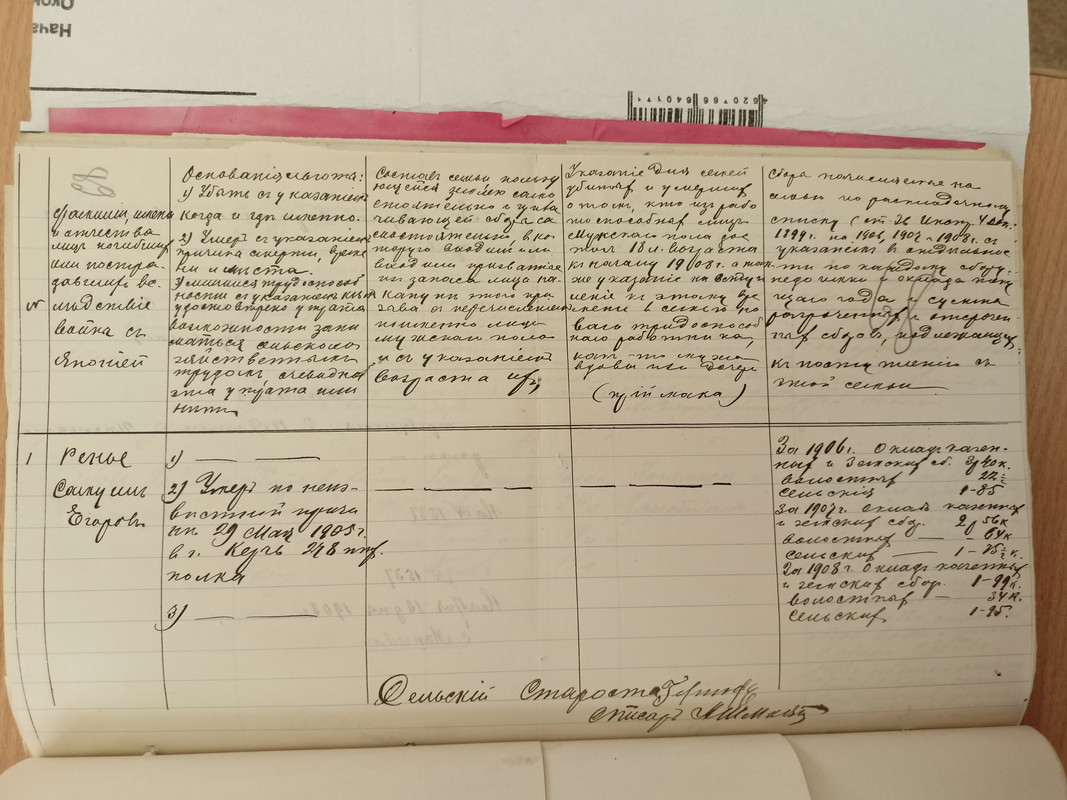 4620766640171
68
№
Фамилия имена
и отчества
лиц погибших
или постра-
давших вс-
лѣдствіе
война съ
Японіей
Основанія льготы:
1) Убитъ съ указаніемъ
когда и гдѣ именно.
2) Умеръ съ указаніемъ
причина смерти, време
ни и мѣста.
3) лишился трудоспособ
ности съ указаніемъ
возможности зани
маться сельско-
хозяйственнымъ
трудомъ
Составъ семьи пользу
ющейся землею само
стоятельно и упла
чивающей сборы са
мостоятельно въ ко
торую входитъ или
входили призванные
изъ запаса лица на-
кану нѣ этого при
зыва съ перечисленіемъ
поименно лицъ
мужского пола
и съ указаніемъ
возраста ихъ
Указаніе для семей
убитыхъ и умершихъ
о томъ, кто изъ рабо
тоспособныхъ лицъ
мужского пола дос
тигъ 18 л. возраста
къ началу 1908 г. а так
же указаніе на вступ
леніе къ этому вре
мени въ семью но
ваго трудоспособ
наго работника,
какъ то мужа
вдовы или дочери
(прій мака)
Сборы
списку (ст. 26 Инст. 4 дек.
1899 г. по 1906, 1907 и 1908 г. съ
указаніемъ въ отдѣльнос
ти по каждому сбору:
недоимки и оклада теку
щаго года и суммы
разсроченныхъ и отсрочен
ныхъ сборовъ, подлежащихъ
къ поступленію съ
этой семьи
1
Ренье
Самуилъ
Егоровъ
1) — —
2) Умеръ по неиз-
вѣстной причи
нѣ 29 Мая 1905 г.
въ г. Керчь 248 пѣх.
полка
3) — —
За 1906 г. Окладъ казен-
ныхъ и Земскихъ сб. 3 р 40 к.
волостныхъ 22 ½
сельскихъ 1-85
За 1907 г. Окладъ казенныхъ
и земскихъ сбор. 2 р 56 к
волостныхъ — 64 к
сельскихъ — 1-75 ½ к.
За 1908 г. Окладъ казенныхъ
и земскихъ сбор. 1-99 к.
волостныхъ — 34 к.
сельскихъ 1-95.
Сельскій Староста
Писарь